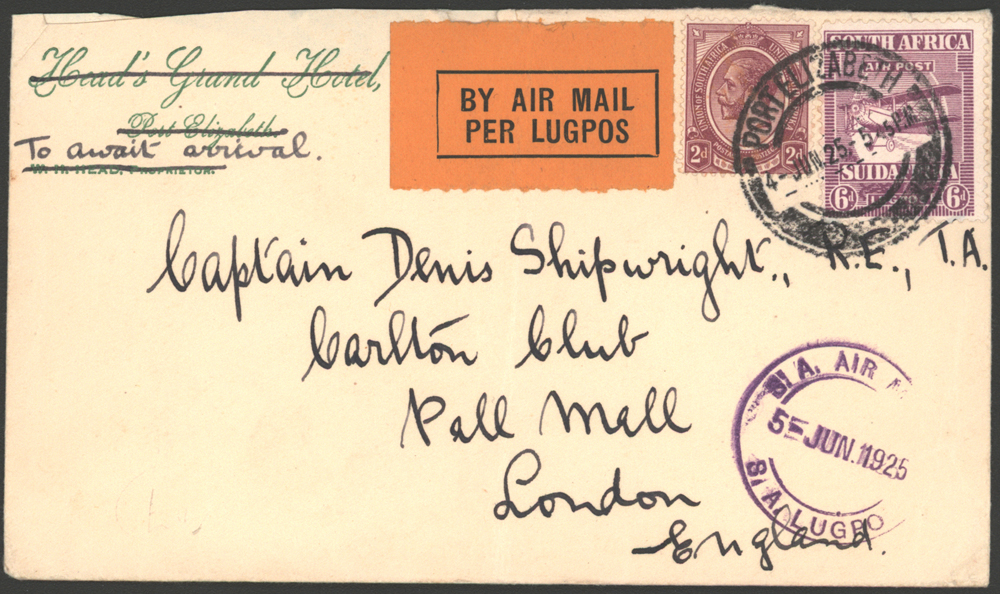 Head's Grand Hotel,
Port Elizabeth.
To await arrival.
W. H. HEAD, PROPRIETOR.
BY AIR MAIL
PER LUGPOS
UNION OF SOUTH AFRICA
2d 2d
SOUTH AFRICA
AIR POST
SUIDAFRIKA
6d 6d
PORT ELIZABETH
4 JUN 25 5
Captain Denis Shipwright., R.E., T.A.
Carlton Club
Pall Mall
London
England.
S. A. AIR
5 JUN. 1925
S. A. LUGPO